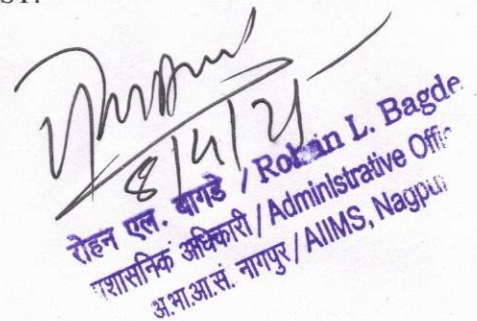 8/4/21
रोहन एल. बागडे / Rohan L. Bagde
प्रशासनिक अधिकारी / Administrative
अ.भा.आ.सं. नागपुर / AIIMS, Nagpur